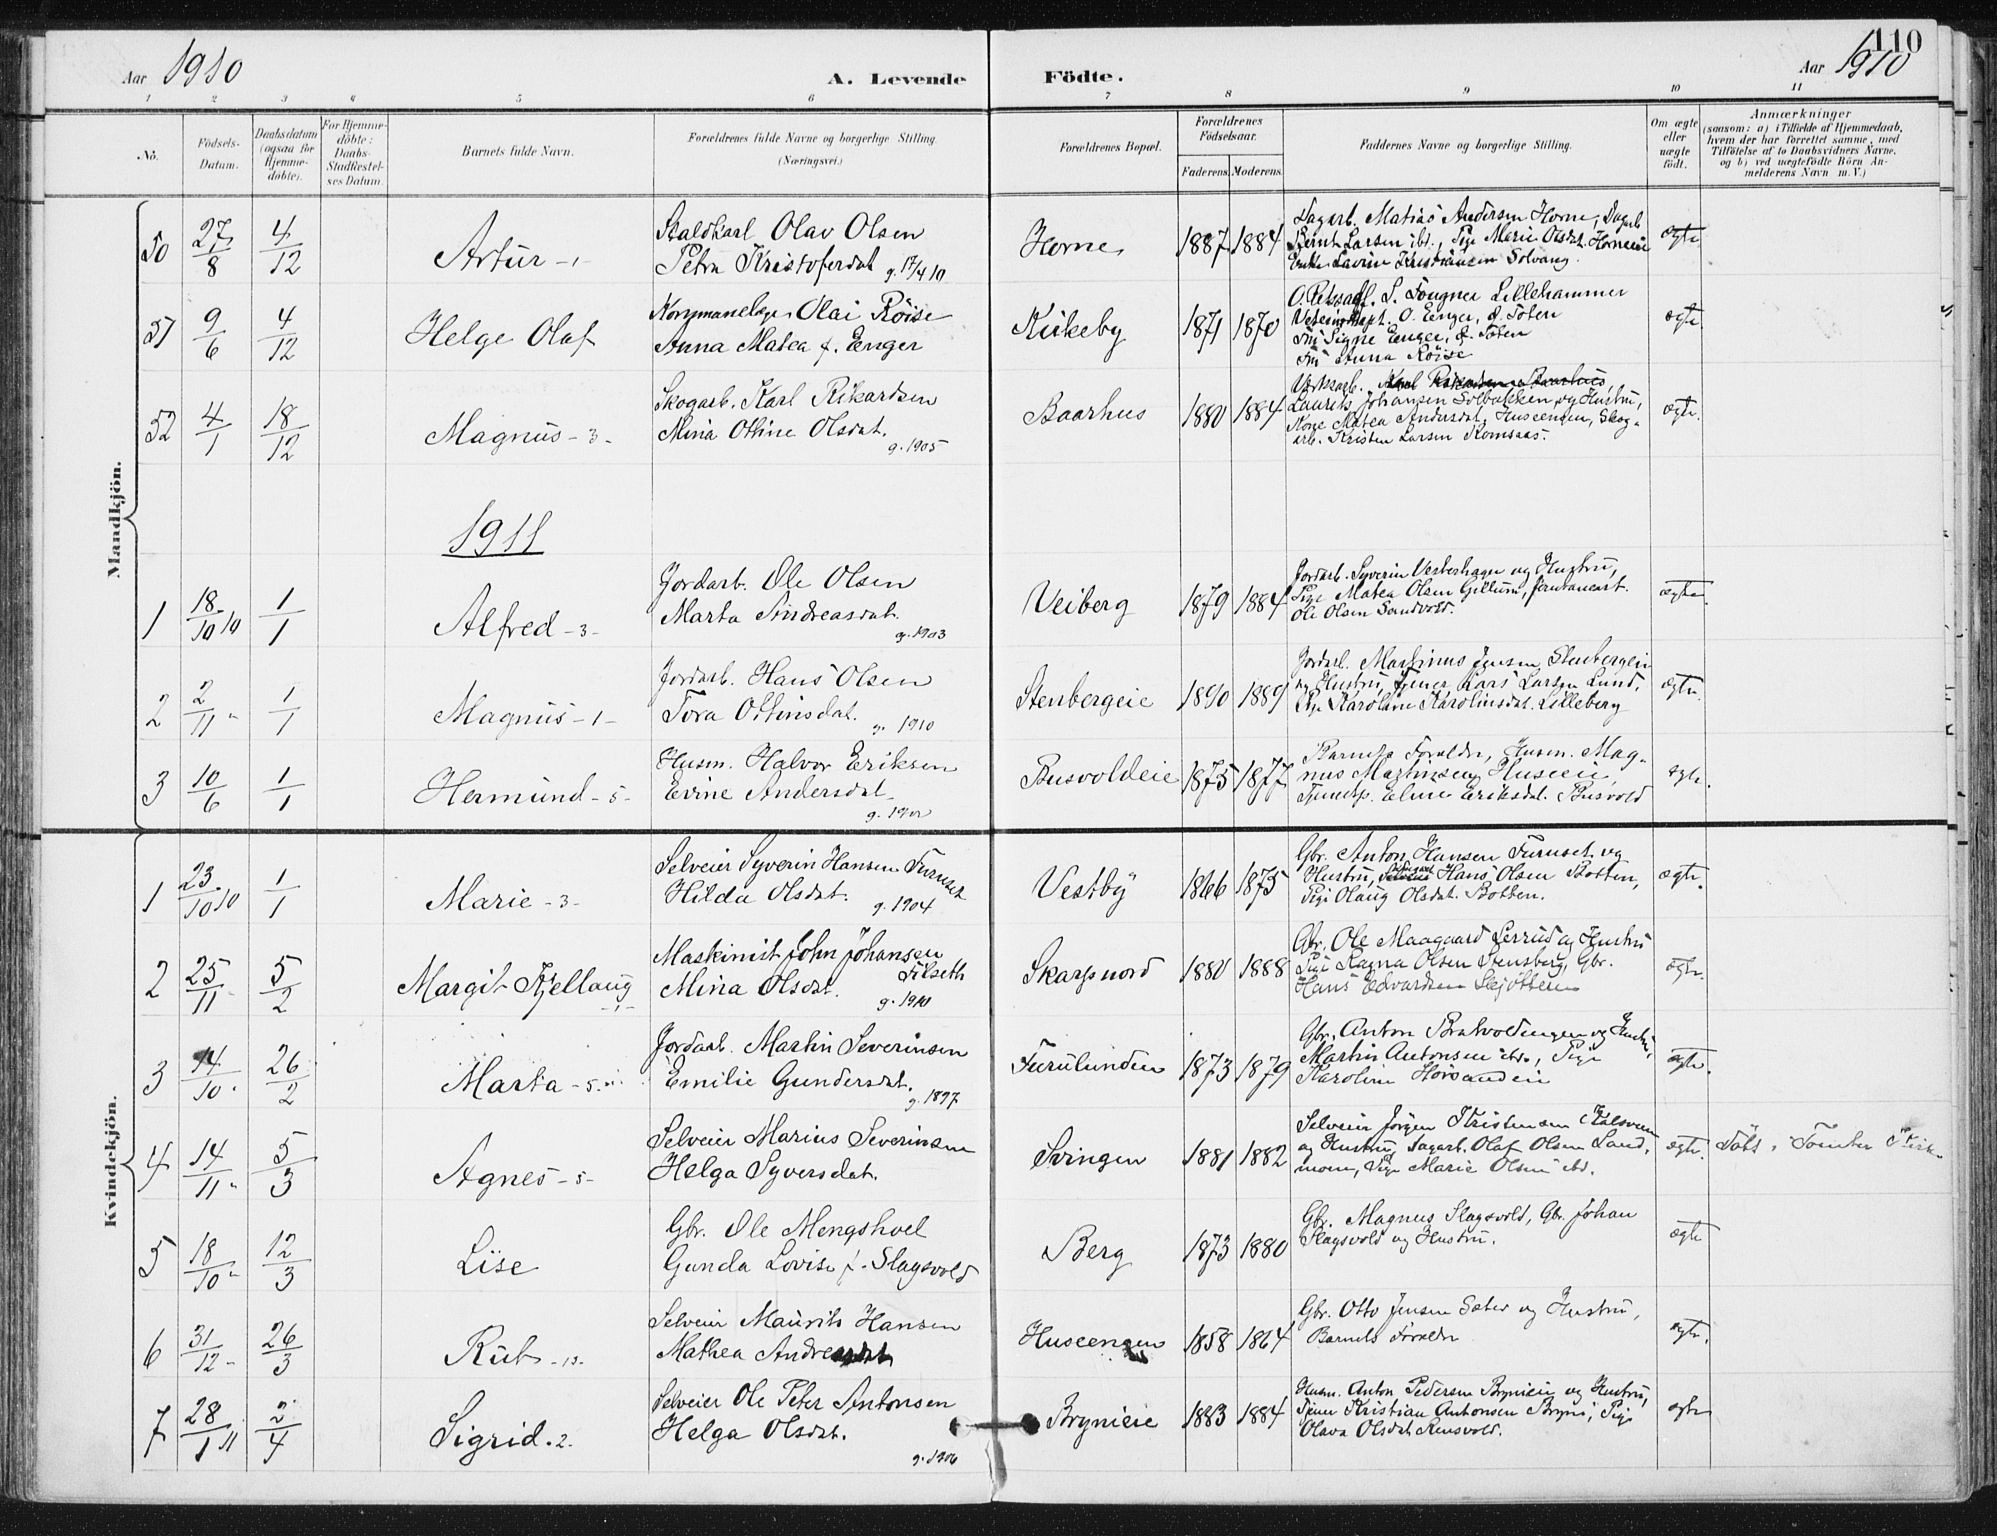 110
Aar 1910
A. Levende Födte.
Aar 1910
1 2 3 4 5 6 7 8 9 10 11
No.
Födsels-Datum.
Daabsdatum (ogsaa for Hjemme-döbte).
For Hjemme-döbte: Daabs-Stadfæstel-ses Datum
Barnets fulde Navn.
Forældrenes fulde Navne og borgerlige Stilling (Næringsvei.)
Forældrenes Bopæl.
Forældrenes Födselsaar.
Faderens. Moderens.
Faddernes Navne og borgerlige Stilling.
Om ægte eller uægte födt.
Anmærkninger
(saasom: a) i Tilfælde af Hjemmedaab, hvem der har forrettet samme, med Tilföielse af to Daabsvidners Navne, og b) ved uægtefödte Börn An-melderens Navn m. V.)
Mandkjön.
50 27/8 4/12 Artur -1-
Staldkarl Olav Olsen
Petra Kristofersdat g. 17/4 10
Horne 1887 1884
Dagarb. Matias Andersen Horne, Dagarb
Bernt Larsen ibd., Pige Marie Olsdat. Horneeie
Enke Lavine Kristiansen Solvang.
ægte
51 9/6 4/12 Helge Olaf
Olai Röise
Anna Matea f. Enger
Kirkeby 1871 1870
O. Retssagf. S. Fougner Lillehammer
O. Enger, Ö. Toten
Frk Signe Enger, Ö. Toten
Frk Anna Röise
ægte
52 4/1 18/12 Magnus -3-
Skogarb. Karl Rikardsen
Mina Othine Olsdat.
g. 1905
Baarhus 1880 1884
Laurits Johansen Solbakken og Hustru,
Kone Matea Andersdat. Huseengen, Skog-
arb. Kristen Larsen Komsaas.
ægte.
1911
1 18/10 10 1/1 Alfred -3-
Jordarb. Ole Olsen
Marta Andreasdat.
g. 1903
Veiberg 1879 1884
Jordarb. Syverin Vesterhagen og Hustru,
Pige Matea Olsen Gillund, Jernbanearb.
Ole Olsen Sandvold.
ægte.
2 2/11 " 1/1 Magnus -1-
Jordarb. Hans Olsen
Tora Ottinsdat. g. 1910
Stenbergeie 1890 1889
Jordarb. Martinus Jensen Stenbergeie
og Hustru, Tjener Lars Larsen Lund,
Pige Karoline Karolinsdat. Lilleberg
ægte.
3 10/6 1/1 Hermund -5-
Husm. Halvor Eriksen
Evine Andersdat
g. 1902
Busvoldeie 1875 1877
Barnets Forældre, Husm. Mag-
nus Martinsen Huseeie,
Tjenestp. Eline Eriksdat. Busvold
ægte.
Kvindekjön.
1 23/10 10 1/1 Marie -3-
Selveier Syverin Hansen Furuset
Hilda Olsdat. g. 1904
Vestby 1866 1875
Gbr. Anton Hansen Furuset og
Hustru, Hans Olsen Botten,
Pige Olaug Olsdat. Botten.
ægte.
2 25/11 " 5/2 Margit Kjellaug -1-
Maskinist John Johansen
Filseth
Mina Olsdat. g. 1910
Skarpsnord 1880 1888
Gbr. Ole Maagaard Lerrud og Hustru
Pige Ragna Olsen Stensberg, Gbr.
Hans Edvardsen Skjötteren
ægte.
3 14/10 " 26/2 Marta -5-
Jordarb. Martin Severinsen
Emilie Gundersdat.
g. 1897
Furulunden 1873 1879
Gbr. Anton Bratvoldengen og Hustru,
Martin Antonsen ibd., Pige
Karoline
ægte.
4 14/11 " 5/3 Agnes -5-
Selveier Marius Severinsen
Helga Syversdat.
Svingen 1881 1882
Selveier Jörgen Kristensen Kalsveen
og Hustru, Dagarb. Olaf Olsen Land,
moen, Pige Marie Olsen ibd.
ægte. Döbt i Tomter Kirke
5 18/10 " 12/3 Lise
Gbr. Ole Mengshoel
Gunda Lovise f. Slagsvold
Berg 1873 1880
Gbr. Magnus Slagsvold, Gbr. Johan
Slagsvold og Hustru.
ægte
6 31/12 " 26/3 Rut -13-
Selveier Maurits Hansen
Mathea Andreasdat
Huseengen 1858 1864
Gbr. Otto Jensen Sæter og Hustru,
Barnets Forældre
ægte.
7 28/1 11 2/4 Sigrid. 2.
Selveier Ole Peter Antonsen
Helga Olsdat.
g. 1906
Brynieie 1883 1884
Husm. Anton Pedersen Brynieie og Hustru,
Tjener Kristian Antonsen Bryni, Pige
Olava Olsdat. Rensvold.
ægte